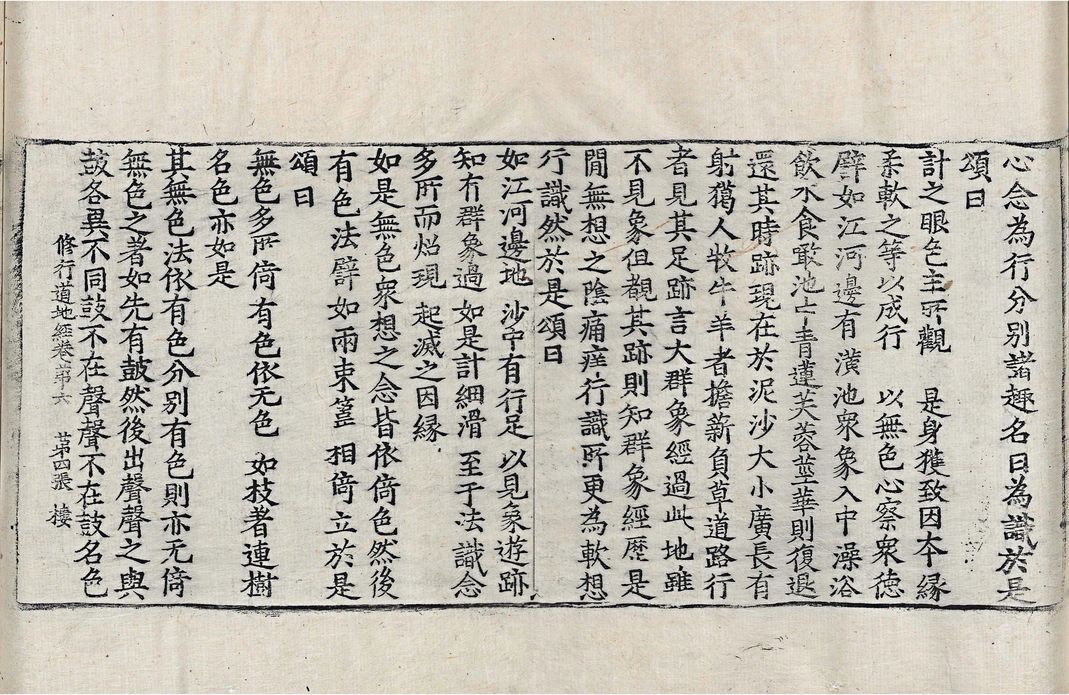 心念為行分別諸趣名曰為識於是
頌曰
計之眼色主所觀　是身獲致因本緣
柔軟之等以成行　以無色心察衆德
譬如江河邊有潢池衆象入中澡浴
飲水食噉池上青蓮芙蓉莖華則復退
還其時跡現在於泥沙大小廣長有
射獵人牧牛羊者擔薪負草道路行
者見其足跡言大群象經過此地雖
不見象但觀其跡則知群象經歷是
間無想之陰痛痒行識所更為軟想
行識然於是頌曰
如江河邊地　沙中有行足　以見象遊跡
知有群象過　如是計細滑　至于法識念
多所而炤現　起滅之因緣
如是無色衆想之念皆依倚色然後
有色法譬如兩束䈥相倚立於是
頌曰
無色多所倚　有色依无色　如枝著連樹
名色亦如是
其無色法依有色分別有色則亦无倚
無色之著如先有鼓然後出聲聲之與
鼓各異不同鼓不在聲聲不在鼓名色
修行道地經卷第六　第四張　樓